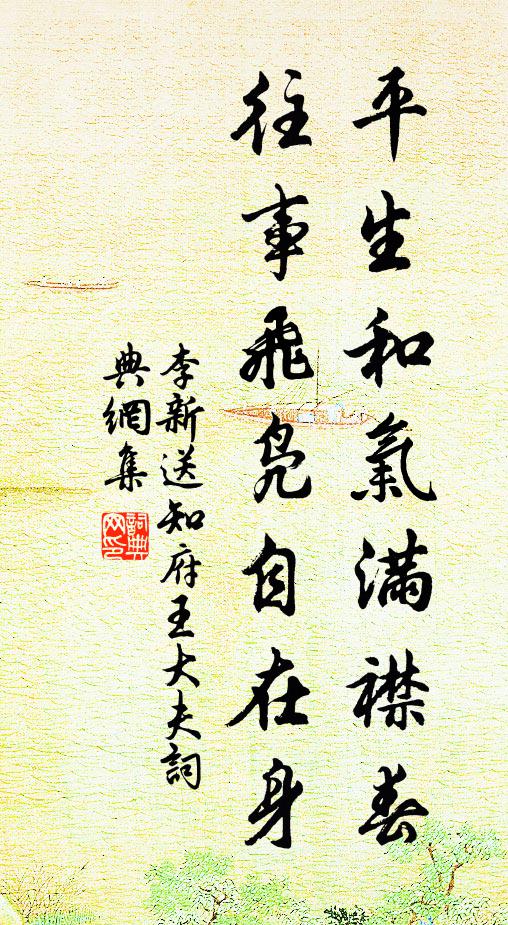 平生和氣滿襟春
往事飛鳧自在身
李新送知府王大夫詞
典網集
詞典網印